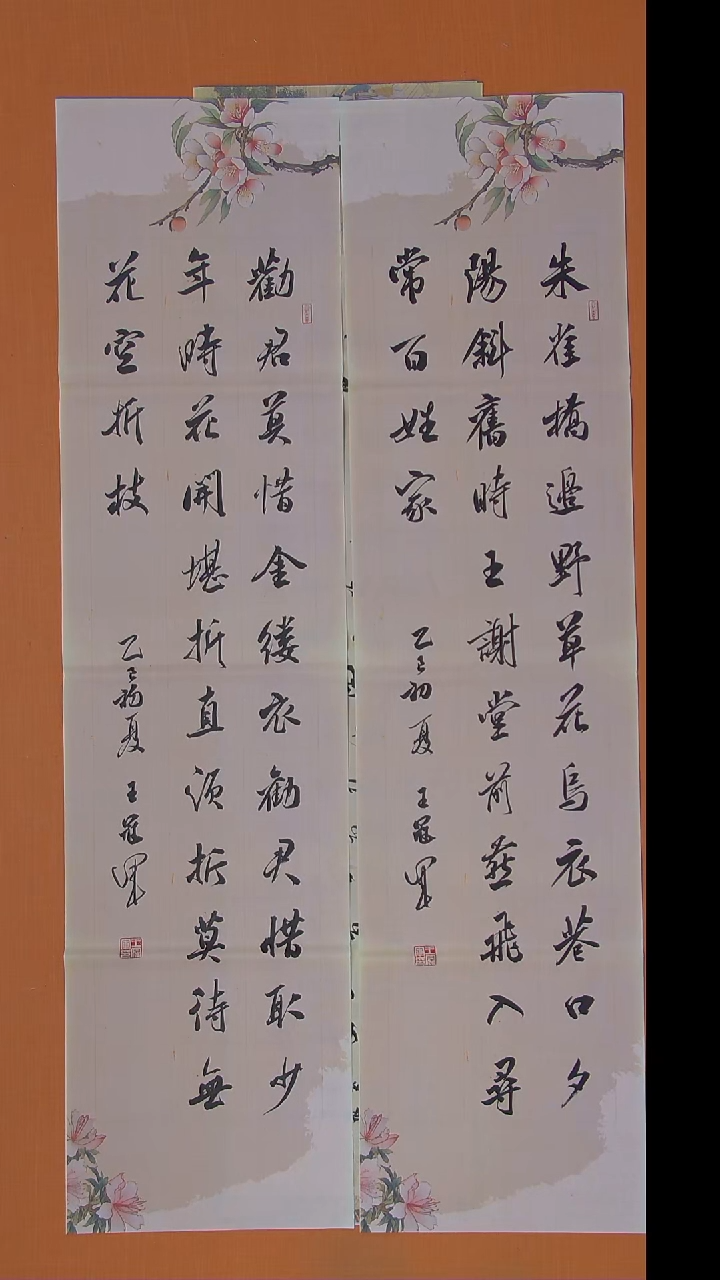 朱雀橋邊野草花烏衣巷口夕
陽斜舊時王謝堂前燕飛入尋
常百姓家
乙巳初夏 王冠
勸君莫惜金缕衣勸君惜取少
年時花開堪折直须折莫待無
花空折枝
乙巳初夏 王冠